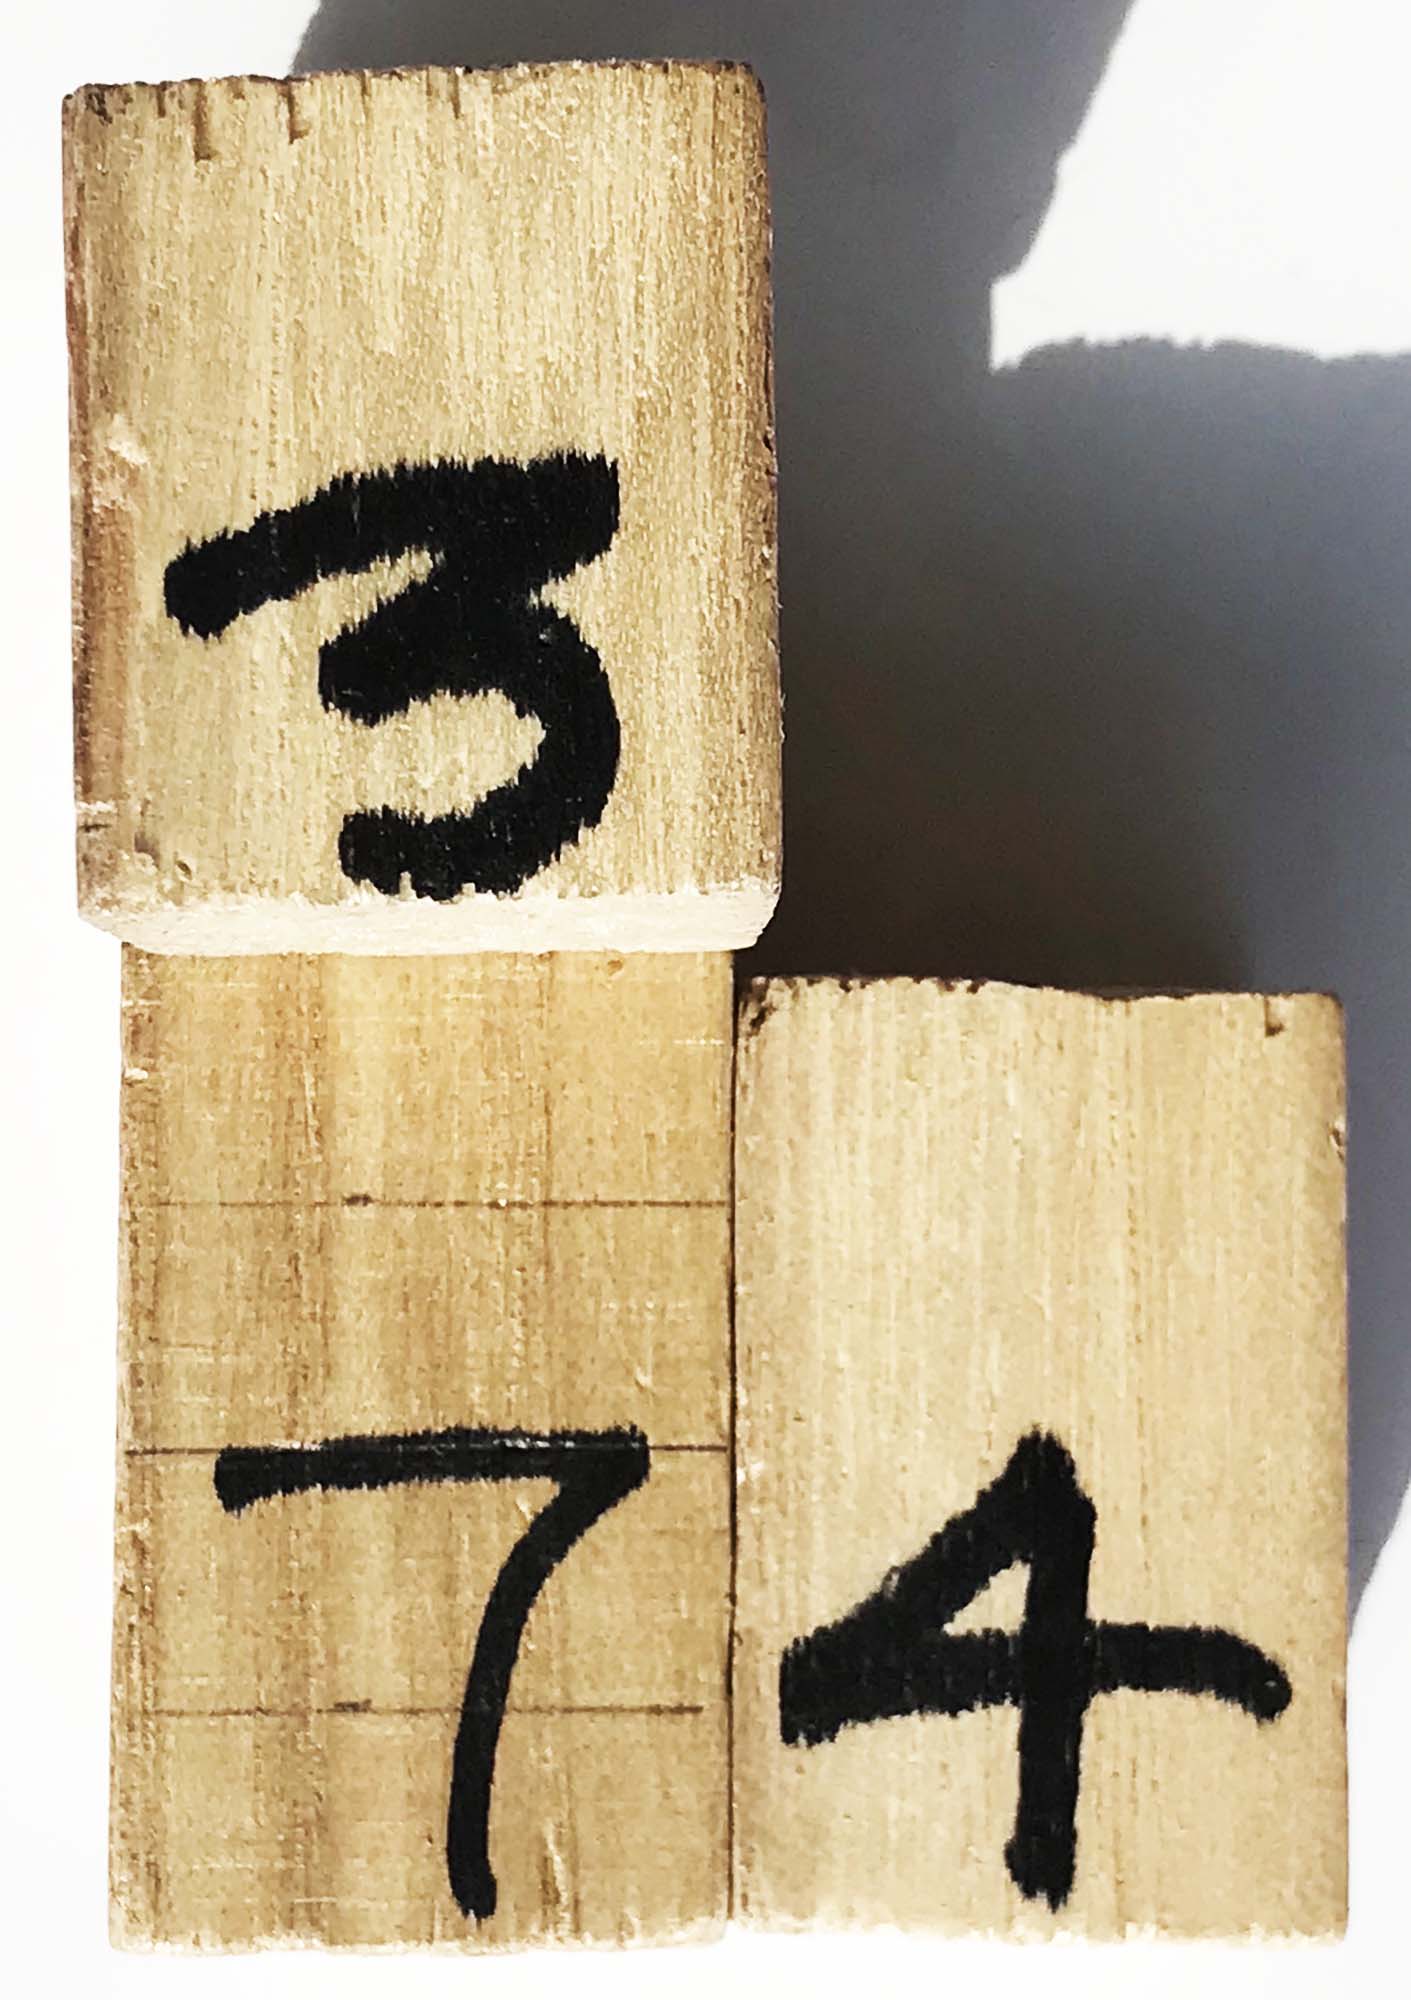 3
7 4